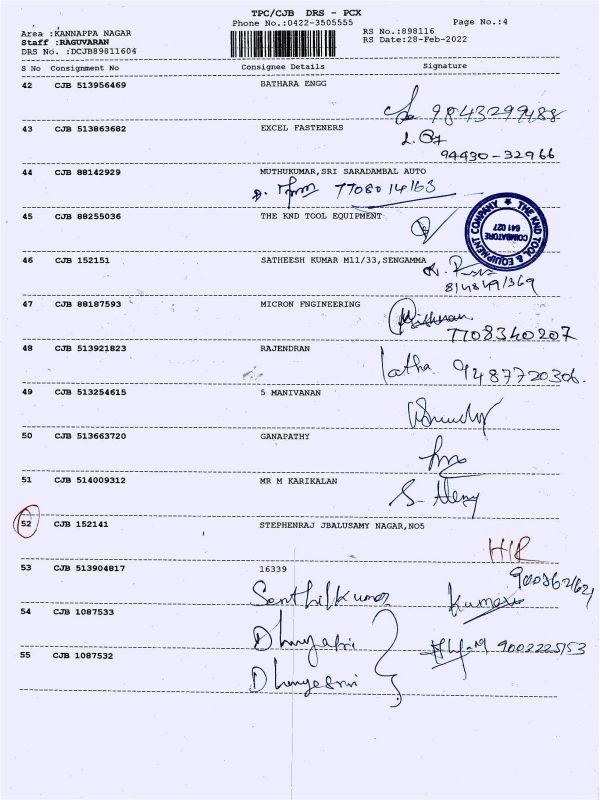 TPC/CJB DRS - PCX
Phone No.:0422-3505555 Page No.:4
Area :KANNAPPA NAGAR RS No.:898116
Staff :RAGUVARAN RS Date:28-Feb-2022
DRS No. :DCJB89811604
S No Consignment No Consignee Details Signature
42 CJB 513956469 BATHARA ENGG
9843299488
43 CJB 513863682 EXCEL FASTENERS
94430-32966
44 CJB 88142929 MUTHUKUMAR,SRI SARADAMBAL AUTO
7708014163
45 CJB 88255036 THE KND TOOL EQUIPMENT
THE KND TOOL & EQUIPMENT COMPANY
COIMBATORE
641 027
46 CJB 152151 SATHEESH KUMAR M11/33,SENGAMMA
47 CJB 88187593 MICRON FNGINEERING
7708340207
48 CJB 513921823 RAJENDRAN
latha 9487720306.
49 CJB 513254615 5 MANIVANAN
50 CJB 513663720 GANAPATHY
51 CJB 514009312 MR M KARIKALAN
52 CJB 152141 STEPHENRAJ JBALUSAMY NAGAR,NO5
53 CJB 513904817 16339
Senthilkumar Kumar
54 CJB 1087533
9002225153
55 CJB 1087532